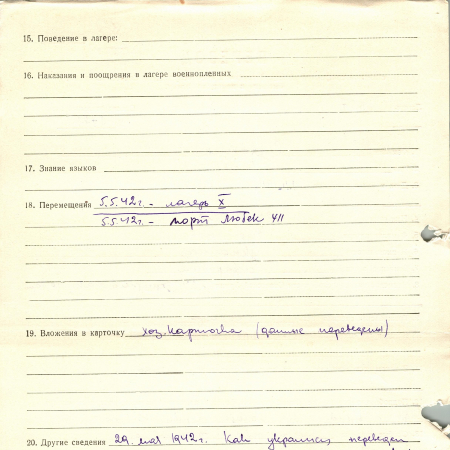 15. Поведение в лагере:
16. Наказания и поощрения в лагере военнопленных
17. Знание языков
18. Перемещения 5.5.42г. - лагерь X
5.5.42г. - порт Любек VII
19. Вложения в карточку хоз. карточка (данные переведены)
20. Другие сведения 29 мая 1942г. Как украинец переведен